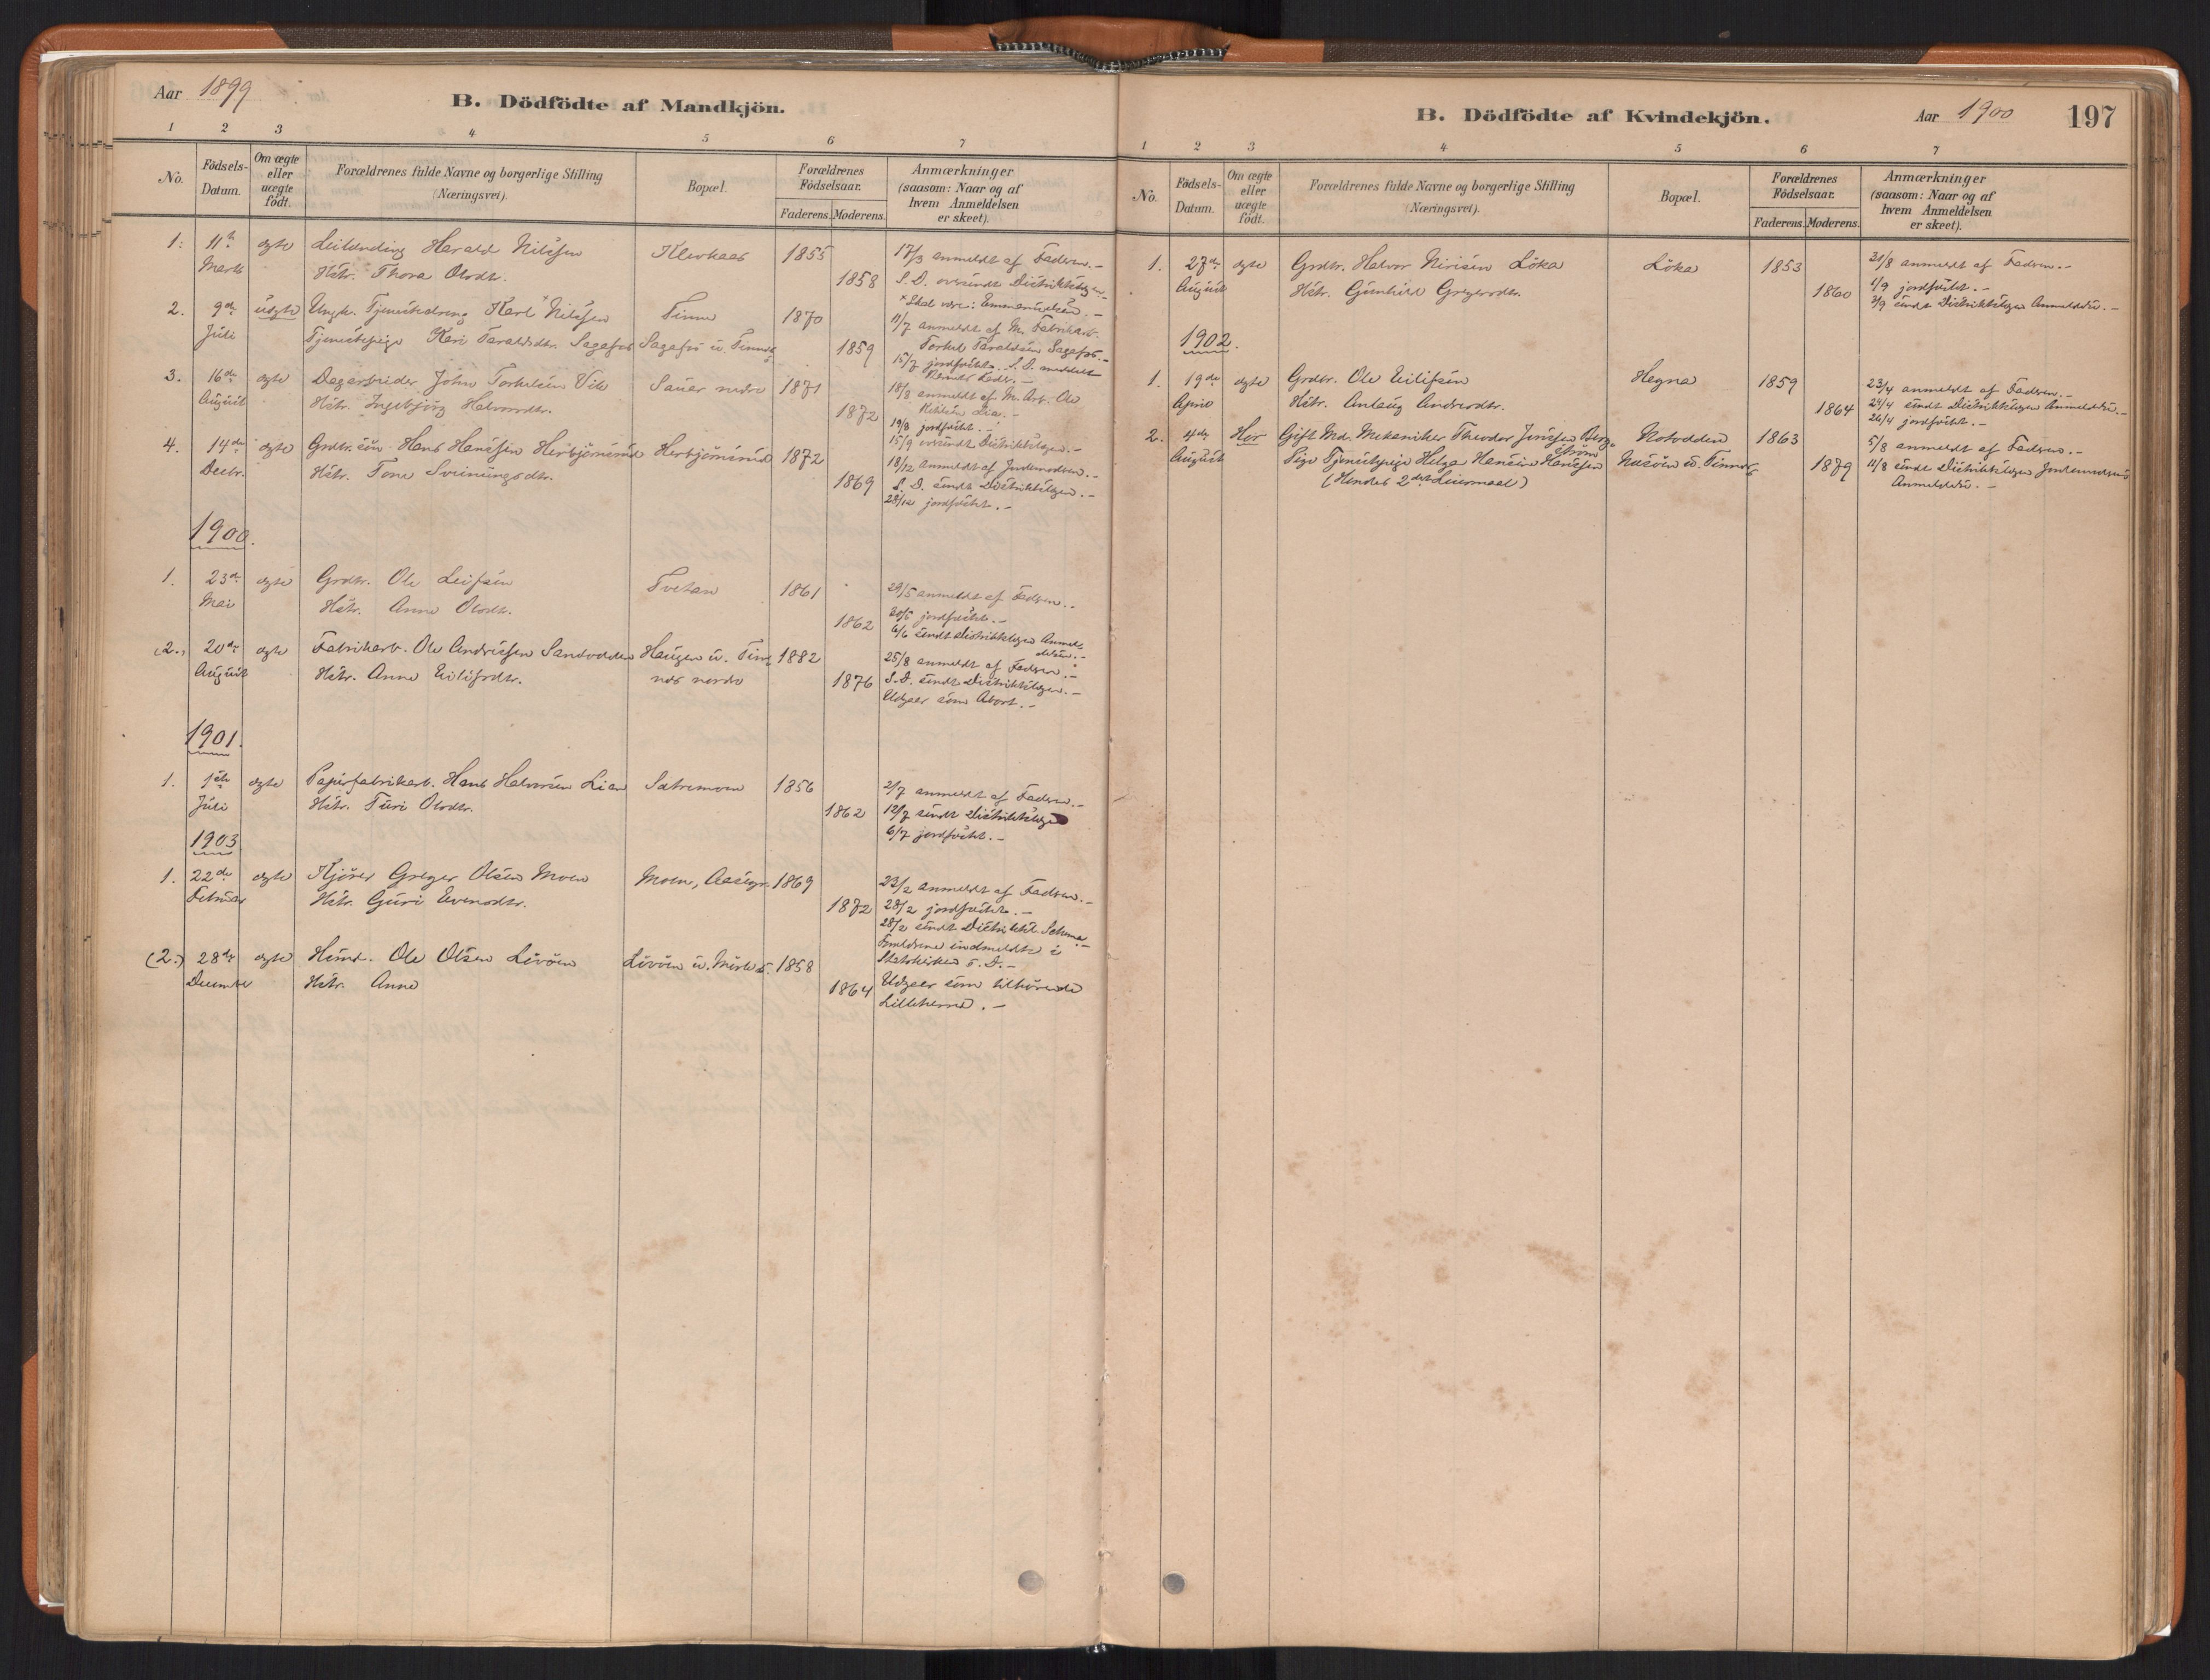 Aar 1899
B. Dödfödte af Mandkjön.
1 2 3 4 5 6 7
No.
Födsels-
Datum.
Om ægte
eller
uægte
födt.
Forældrenes fulde Navne og borgerlige Stilling
(Næringsvei).
Bopæl.
Forældrenes
Födselsaar.
Faderens. Moderens.
Anmærkninger
(saasom: Naar og af
hvem Anmeldelsen
er skeet).
1. 11te ægte Leilænding Harald Nilssen Klevkaas 1855 17/3 anmeldt af Faderen.-
Marts Hstr. Thora Olsdtr. 1858 S. D. oversendt Distriktslægen.-
* Skal være: Emanuelsen.-
2. 9de uægte Ungk. Tjenestedreng Karl * Nilssen Tinne 1870 11/7 anmeldt af M. Fabrikarb.
Juli Tjenestepige Kari Taraldsdtr. Sagafos Sagafos u. Tinnes 1859 Torkel Taraldsen Sagafos.-
15/7 jordfæstet. S. D. meddelt
3. 16de ægte Dagarbeider John Torkelsen Vik Sauer nedre 1871 18/8 anmeldt af M. Arb. Ole
August Hstr. Ingebjörg Halvorsdtr. 1872 Kittilsen Lia.-
19/8 jordfæstet.-
15/9 oversendt Distriktslægen.-
4. 14de ægte Grdbr.sön Hans Hansen Herbjörnsrud Herbjörnsrud 1872 18/12 Anmeldt af Jordemoderen.-
Decbr. Hstr. Tone Sveinungsdtr. 1869 S. D. sendt Distriktslægen.-
28/12 jordfæstet.-
1900.
1. 23de ægte Grdbr. Ole Leifsen Tvetan 1861 29/5 anmeldt af Faderen.-
Mai Hstr. Anne Olsdtr. 1862 30/5 jordfæstet.-
6/6 sendt Distriktslægen Anmel-
delsen.-
(2.) 20de ægte Fabrikarb. Ole Andreassen Sandodden Haugen u. Tin- 1882 25/8 anmeldt af Faderen.-
August Hstr. Anne Eilifsdtr. nes nordre 1876 S. D. sendt Distriktslægen.-
Udgaar som Abort.-
1901.
1. 1ste ægte Papirfabrikarb. Hans Halvorsen Lian Sætremoen 1856 2/7 anmeldt af Faderen.-
Juli Hstr. Turi Olsdtr. 1862 12/7 sendt Distriktslægen
6/7 jordfæstet.-
1903
1. 22de ægte Kjører Greger Olsen Moen Moen, 1869 23/2 anmeldt af Faderen.-
Februar Hstr. Guri Evensdtr. 1872 28/2 jordfæstet.-
28/2 sendt Distriktsl. Schema.-
Forældrene indmeldte i
Statskirken s. D.-
(2.) 28de ægte Husmd. Ole Olsen Lövöen Lövöen u. 1858
December Hstr. Anne 1864 Udgaar som tilhørende
Lilleherred.-
B. Dödfödte af Kvindekjön.
Aar 1900
197
1 2 3 4 5 6 7
No.
Födsels-
Datum.
Om ægte
eller
uægte
födt.
Forældrenes fulde Navne og borgerlige Stilling
(Næringsvei).
Bopæl.
Forældrenes
Födselsaar.
Faderens. Moderens.
Anmærkninger
(saasom: Naar og af
hvem Anmeldelsen
er skeet).
1. 27de ægte Grdbr. Halvor Nirisen Löka Löka 1853 31/8 anmeldt af Faderen.-
August Hstr. Gunhild Gregersdtr. 1860 1/9 jordfæstet.-
3/9 sendt Distriktslægen Anmeldelse.-
1902.
1. 19de ægte Grdbr. Ole Eilifsen Hegna 1859 23/4 anmeldt af Faderen.-
April Hstr. Anlaug Andersdtr. 1864 24/4 sendt Distriktslægen Anmeldelse.-
26/4 jordfæstet.-
2. 4de Hor Gift Md. Mekaniker Theodor Jonssen Berg- Notodden 1863 5/8 anmeldt af Faderen.-
ström
August Pige Tjenestepige Helga Hansine Hanssen u. Tinnes 1879 11/8 sendt Distriktslægen Jordemoderens
(Hendes 2det Leiermaal) Anmeldelse.-